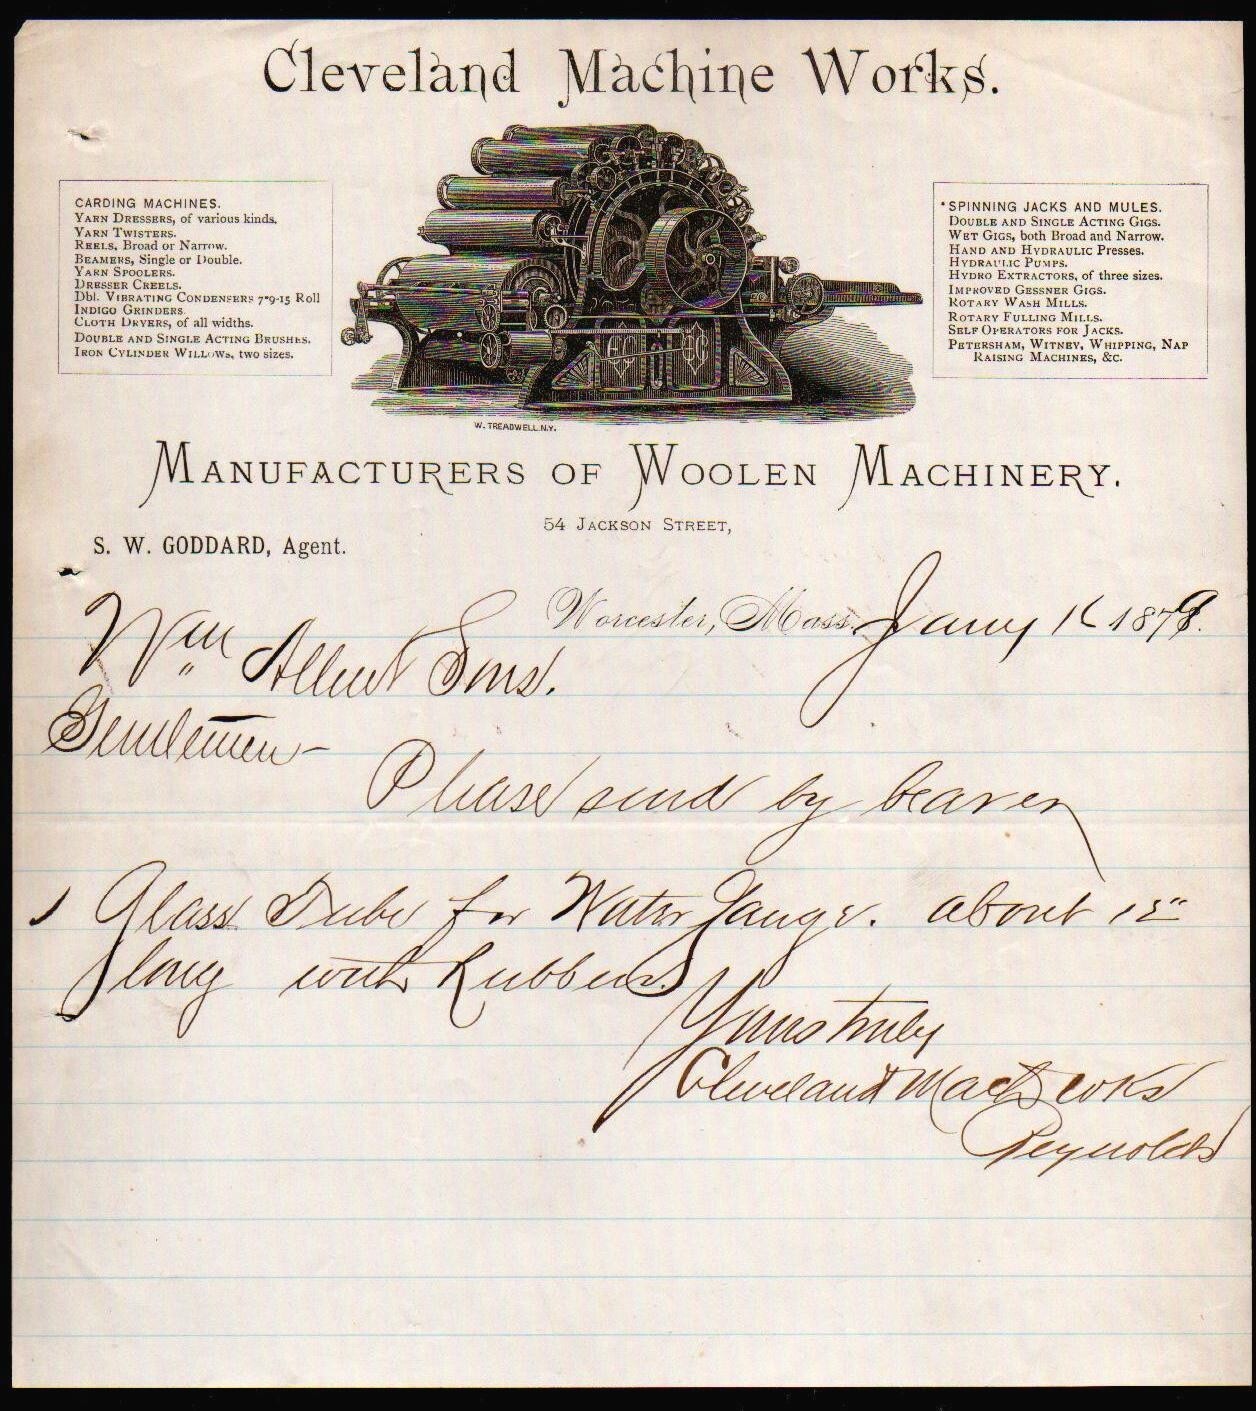 Cleveland Machine Works.
CARDING MACHINES.
YARN DRESSERS, of various kinds.
YARN TWISTERS.
REELS, Broad or Narrow.
BEAMERS, Single or Double.
YARN SPOOLERS.
DRESSER CREELS.
Dbl. VIBRATING CONDENSERS 7-9-15 Roll
INDIGO GRINDERS
CLOTH DRYERS, of all widths.
DOUBLE AND SINGLE ACTING BRUSHES.
IRON CYLINDER WILLOWS, two sizes.
SPINNING JACKS AND MULES.
DOUBLE AND SINGLE ACTING GIGS.
WET GIGS, both Broad and Narrow.
HAND AND HYDRAULIC Presses.
HYDRAULIC PUMPS.
HYDRO EXTRACTORS, of three sizes.
IMPROVED GESSNER GIGS.
ROTARY WASH MILLS.
ROTARY FULLING MILLS.
SELF OPERATORS FOR JACKS.
PETERSHAM, WITNEY, WHIPPING, NAP
RAISING MACHINES, &C.
W. TREADWELL. N.Y.
MANUFACTURERS OF WOOLEN MACHINERY.
54 JACKSON STREET,
S. W. GODDARD, Agent.
Worcester, Mass. Jany 16 1879.
Wm Allen & Sons.
Gentlemen -
Please send by bearer
1 Glass Tube for Water Gauge. about
long with Rubbers.
Yours truly
Cleveland Mach Wks
Reynolds